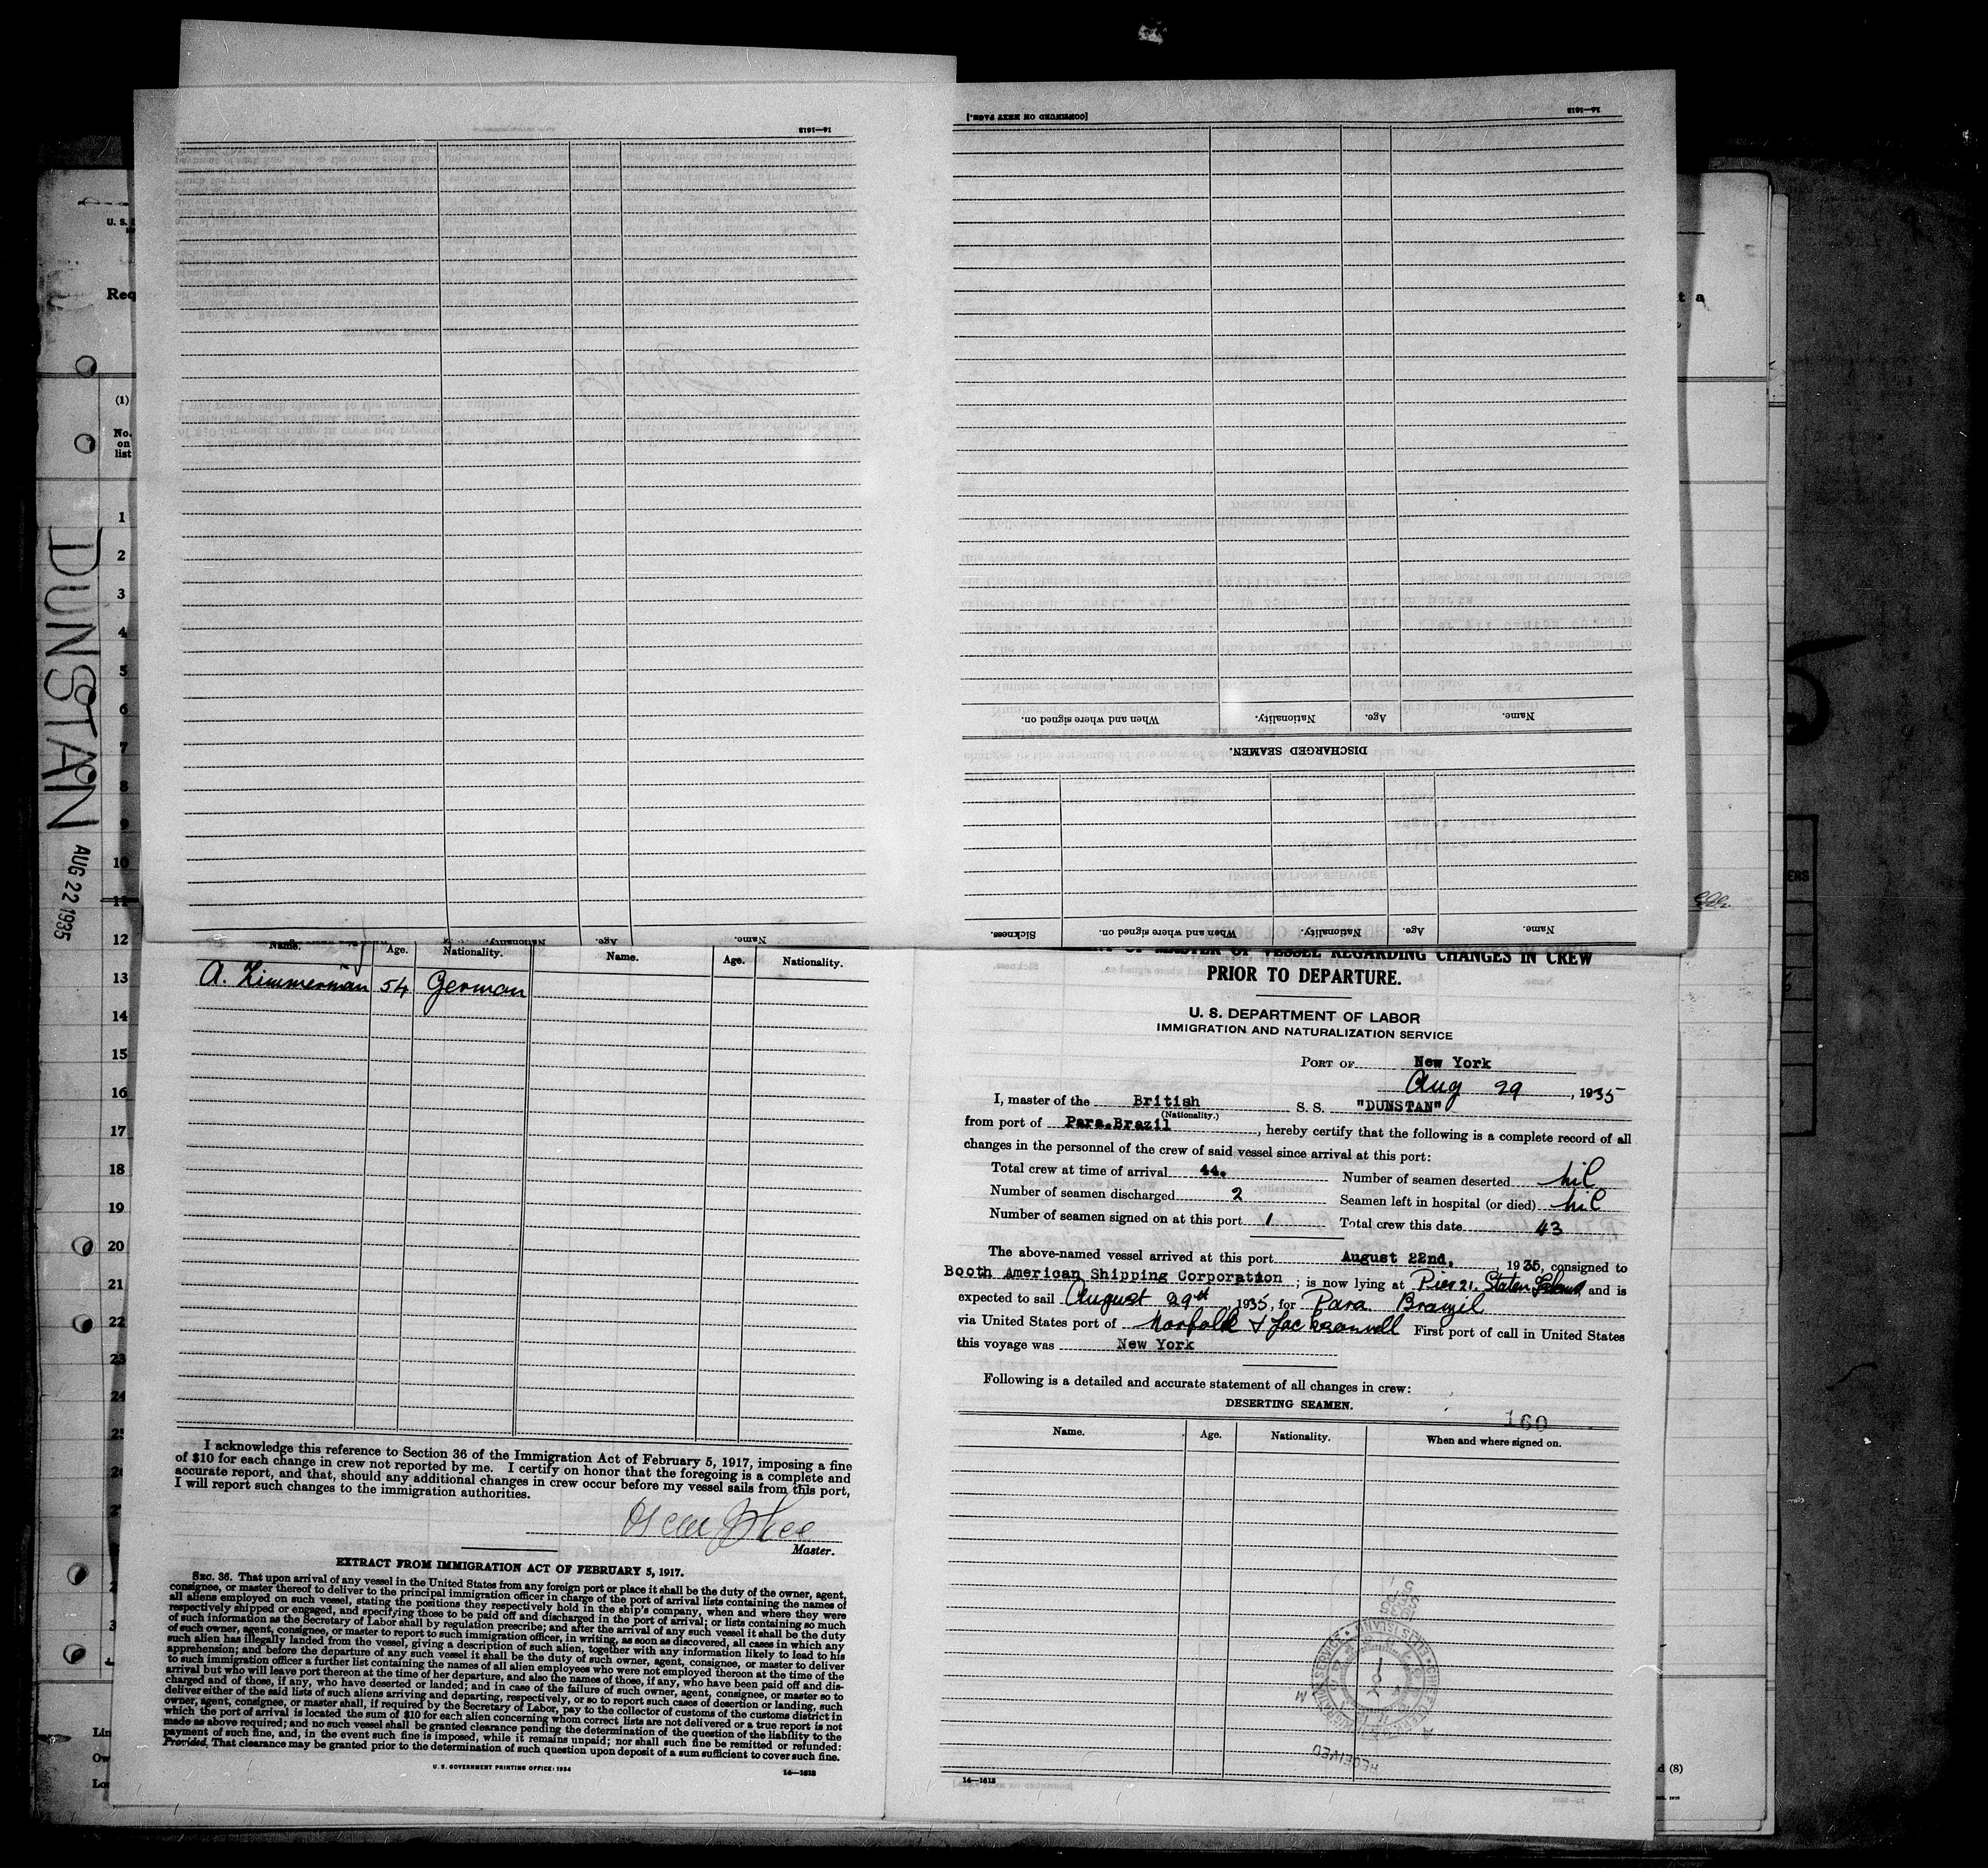 14—1613
[CONTINUED ON NEXT PAGE.]
14—1613
U. S.
Req
(1)
No.
on
list
1
2
3
4
5
6
7
8
9
10
11
12
13
14
15
16
17
18
19
20
21
22
23
24
25
DUNSTAN
AUG 22 1935
When and where signed on. Nationality. Age. Name.
DISCHARGED SEAMEN.
Sickness. When and where signed on. Nationality. Age. Name.
Name. Age. Nationality. Name. Age. Nationality.
A. Zimmerman 54 German
I acknowledge this reference to Section 36 of the Immigration Act of February 5, 1917, imposing a fine
of $10 for each change in crew not reported by me. I certify on honor that the foregoing is a complete and
accurate report, and that, should any additional changes in crew occur before my vessel sails from this port,
I will report such changes to the immigration authorities.
Master.
EXTRACT FROM IMMIGRATION ACT OF FEBRUARY 5, 1917.
SEC. 36. That upon arrival of any vessel in the United States from any foreign port or place it shall be the duty of the owner, agent,
consignee, or master thereof to deliver to the principal immigration officer in charge of the port of arrival lists containing the names of
all aliens employed on such vessel, stating the positions they respectively hold in the ship's company, when and where they were
respectively shipped or engaged, and specifying those to be paid off and discharged in the port of arrival; or lists containing so much
of such information as the Secretary of Labor shall by regulation prescribe; and after the arrival of any such vessel it shall be the duty
of such owner, agent, consignee, or master to report to such immigration officer, in writing, as soon as discovered, all cases in which any
such alien has illegally landed from the vessel, giving a description of such alien, together with any information likely to lead to his
apprehension; and before the departure of any such vessel it shall be the duty of such owner, agent, consignee, or master to deliver
to such immigration officer a further list containing the names of all alien employees who were not employed thereon at the time of the
arrival but who will leave port thereon at the time of her departure, and also the names of those, if any, who have been paid off and dis-
charged and of those, if any, who have deserted or landed; and in case of the failure of such owner, agent, consignee, or master so to
deliver either of the said lists of such aliens arriving and departing, respectively, or so to report such cases of desertion or landing, such
owner, agent, consignee, or master shall, if required by the Secretary of Labor, pay to the collector of customs of the customs district in
which the port of arrival is located the sum of $10 for each alien concerning whom correct lists are not delivered or a true report is not
made as above required; and no such vessel shall be granted clearance pending the determination of the question of the liability to the
payment of such fine, and, in the event such fine is imposed, while it remains unpaid; nor shall such fine be remitted or refunded:
Provided, That clearance may be granted prior to the determination of such question upon deposit of a sum sufficient to cover such fine.
U. S. GOVERNMENT PRINTING OFFICE: 1934
14—1613
OF MASTER OF VESSEL REGARDING CHANGES IN CREW
PRIOR TO DEPARTURE.
U. S. DEPARTMENT OF LABOR
IMMIGRATION AND NATURALIZATION SERVICE
PORT OF New York
Aug 29, 1935
I, master of the British S. S. "DUNSTAN"
(Nationality.)
from port of Para.Brazil, hereby certify that the following is a complete record of all
changes in the personnel of the crew of said vessel since arrival at this port:
Total crew at time of arrival 44. Number of seamen deserted nil
Number of seamen discharged 2 Seamen left in hospital (or died) nil
Number of seamen signed on at this port 1 Total crew this date 43
The above-named vessel arrived at this port August 22nd, 1935, consigned to
Booth American Shipping Corporation; is now lying at Pier 21. Staten Island and is
expected to sail August 29th, 1935, for Para Brazil
via United States port of Norfolk & Jacksonvill First port of call in United States
this voyage was New York
Following is a detailed and accurate statement of all changes in crew:
DESERTING SEAMEN.
160
Name. Age. Nationality. When and where signed on.
RECEIVED
14—1613